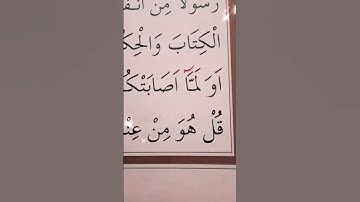 رَسُولًا مِنْ اَنْفُ
الْكِتَابَ وَالْحِكْ
اَوَ لَمَّٓا اَصَابَتْكُ
قُلْ هُوَ مِنْ عِنْ